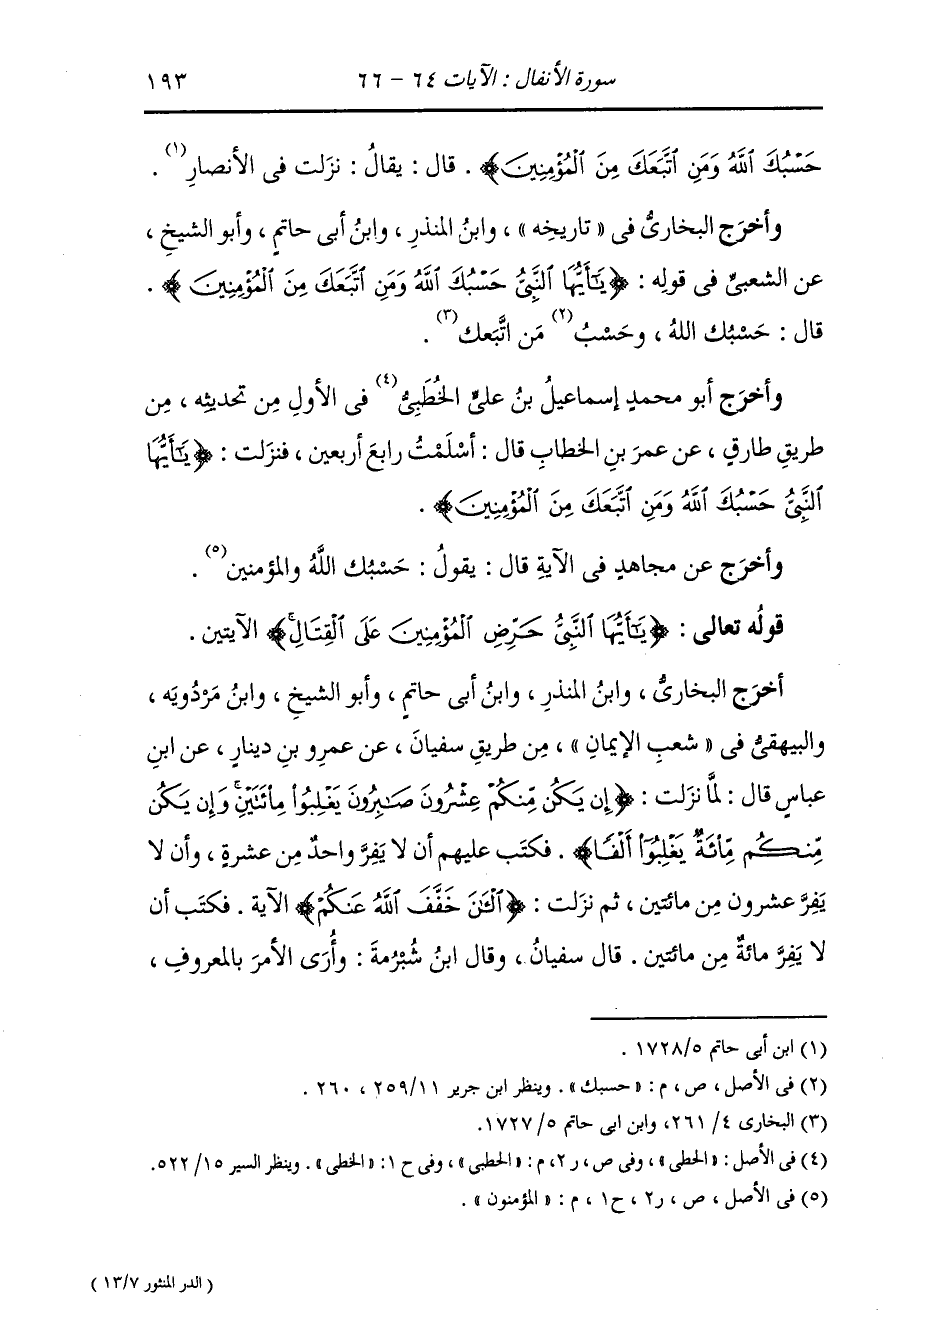 سورة الأنفال : الآيات ٦٤ - ٦٦ ١٩٣
حَسْبُكَ ٱللَّهُ وَمَنِ ٱتَّبَعَكَ مِنَ ٱلْمُؤْمِنِينَ﴾ . قال : يقالُ : نزَلت فى الأنصارِ(١) .
وأخرَج البخارىُّ فى « تاريخِه » ، وابنُ المنذرِ ، وابنُ أبى حاتمٍ ، وأبو الشيخِ ،
عن الشعبىِّ فى قولِه : ﴿يَٰٓأَيُّهَا ٱلنَّبِىُّ حَسْبُكَ ٱللَّهُ وَمَنِ ٱتَّبَعَكَ مِنَ ٱلْمُؤْمِنِينَ﴾ .
قال : حَسْبُك اللهُ ، وحَسْبُ(٢) مَن اتَّبَعك(٣) .
وأخرَج أبو محمدٍ إسماعيلُ بنُ علىٍّ الخُطَبِىُّ(٤) فى الأولِ مِن تحديثِه ، مِن
طريقِ طارقٍ ، عن عمرَ بنِ الخطابِ قال : أسْلَمْتُ رابعَ أربعين ، فنزَلت : ﴿يَٰٓأَيُّهَا
ٱلنَّبِىُّ حَسْبُكَ ٱللَّهُ وَمَنِ ٱتَّبَعَكَ مِنَ ٱلْمُؤْمِنِينَ﴾ .
وأخرَج عن مجاهدٍ فى الآيةِ قال : يقولُ : حَسْبُك اللَّهُ والمؤمنين(٥) .
قولُه تعالى : ﴿يَٰٓأَيُّهَا ٱلنَّبِىُّ حَرِّضِ ٱلْمُؤْمِنِينَ عَلَى ٱلْقِتَالِۚ﴾ الآيتين .
أخرَج البخارىُّ ، وابنُ المنذرِ ، وابنُ أبى حاتمٍ ، وأبو الشيخِ ، وابنُ مَرْدُويَه ،
والبيهقىُّ فى « شعبِ الإيمانِ » ، مِن طريقِ سفيانَ ، عن عمرِو بنِ دينارٍ ، عن ابنِ
عباسٍ قال : لمَّا نزَلت : ﴿إِن يَكُن مِّنكُمْ عِشْرُونَ صَٰبِرُونَ يَغْلِبُوا۟ مِا۟ئَتَيْنِۚ وَإِن يَكُن
مِّنكُم مِّا۟ئَةٌ يَغْلِبُوٓا۟ أَلْفًا﴾ . فكتَب عليهم أن لا يَفِرَّ واحدٌ مِن عشرةٍ ، وأن لا
يَفِرَّ عشرون مِن مائتين ، ثم نزَلت : ﴿ٱلْـَٰٔنَ خَفَّفَ ٱللَّهُ عَنكُمْ﴾ الآية . فكتَب أن
لا يَفِرَّ مائةٌ مِن مائتين . قال سفيانُ ، وقال ابنُ شُبْرُمةَ : وأُرَى الأمرَ بالمعروفِ ،
(١) ابن أبى حاتم ١٧٢٨/٥ .
(٢) فى الأصل ، ص ، م : « حسبك » . وينظر ابن جرير ٢٥٩/١١ ، ٢٦٠ .
(٣) البخارى ٤/ ٢٦١، وابن ابى حاتم ٥/ ١٧٢٧.
(٤) فى الأصل : « الحطى » ، وفى ص ، ر ٢، م : « الخطبى » ، وفى ح ١: « الخطى » . وينظر السير ١٥/ ٥٢٢.
(٥) فى الأصل ، ص ، ر٢ ، ح١ ، م : « المؤمنون » .
( الدر المنثور ١٣/٧ )